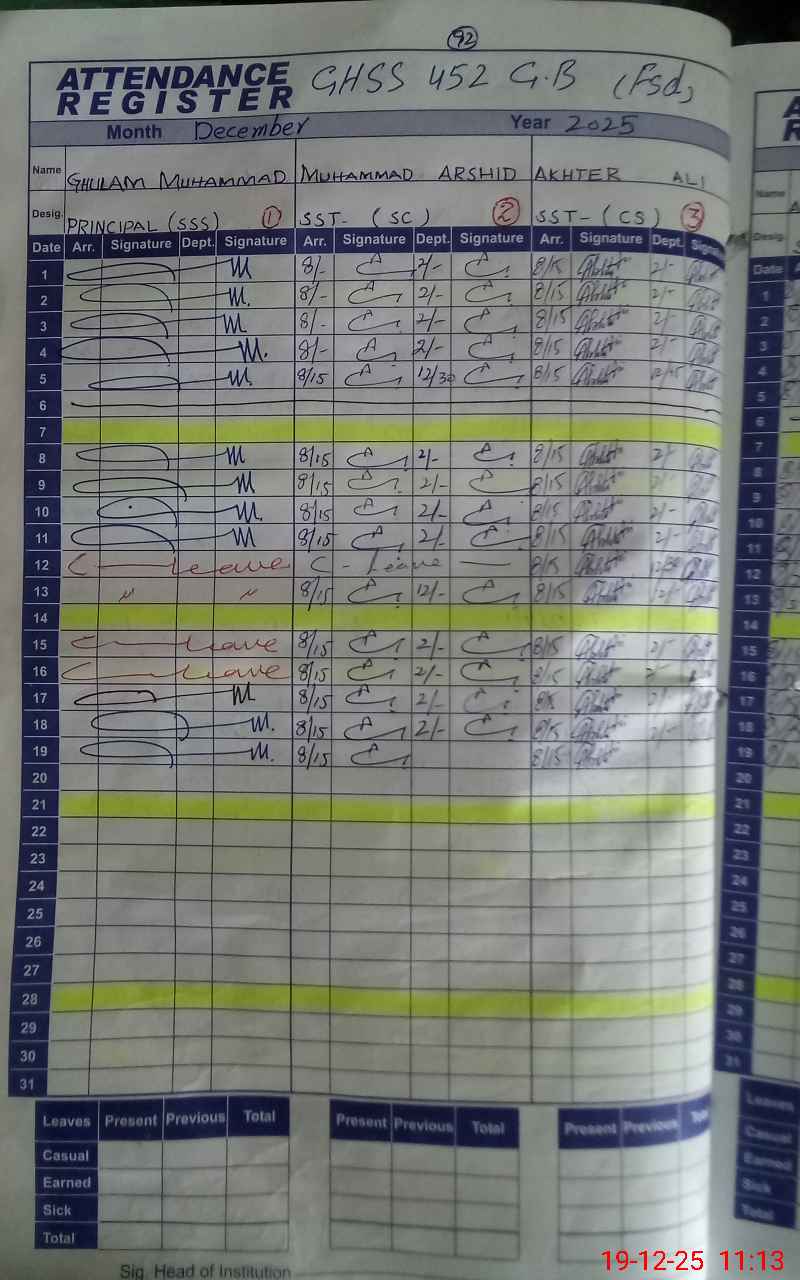 92
ATTENDANCE REGISTER GHSS 452 G.B (Fsd)
Month December Year 2025
Name GHULAM MUHAMMAD MUHAMMAD ARSHID AKHTER ALI
Desig. PRINCIPAL (SSS) 1 SST- (SC) 2 SST- (CS) 3
Date Arr. Signature Dept. Signature Arr. Signature Dept. Signature Arr. Signature Dept.
1 8/- 2/- 8/15 2/-
2 8/- 2/- 8/15 2/-
3 8/- 2/- 8/15 2/-
4 8/- 2/- 8/15 2/-
5 8/15 12/30 8/15
6
7
8 8/15 2/- 8/15 2/-
9 8/15 2/- 8/15 2/-
10 8/15 2/- 8/15 2/-
11 8/15 2/- 8/15 2/-
12 C - Leave C - Leave 8/15 12/30
13 " " 8/15 12/- 8/15 12/-
14
15 C - Leave 8/15 2/- 8/15 2/-
16 C - Leave 8/15 2/- 8/15
17 8/15 2/- 2/-
18 8/15 2/- 8/15 2/-
19 8/15 8/15
20
21
22
23
24
25
26
27
28
29
30
31
Leaves Present Previous Total Present Previous Total Present Previous
Casual
Earned
Sick
Total
Sig. Head of Institution
19-12-25 11:13